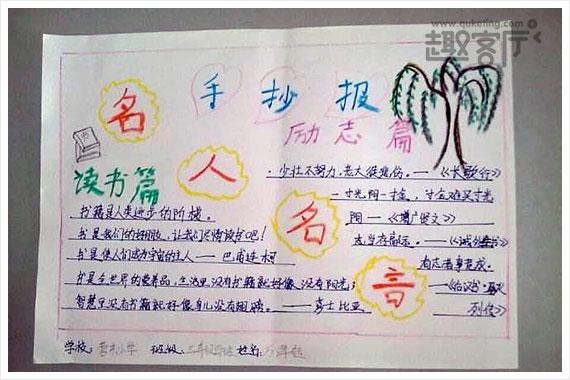 www.quketing.com
趣客厅
手抄报
名人名言
励志篇
读书篇
少壮不努力,老大徒悲伤。—《长歌行》
一寸光阴一寸金,寸金难买寸光
阴—《增广贤文》
志当存高远。—《诫外甥书》
有志者事竟成。
—《后汉书·
列传》
书籍是人类进步的阶梯。
书是我们的好朋友,让我们尽情读书吧!
书是使人们成为宇宙的主人——巴甫连柯
书是全世界的营养品,生活里没有书籍就好像没有阳光;
智慧里没有书籍就好像鸟儿没有翅膀。——莎士比亚
学校: 小学 班级: 三年级 姓名: